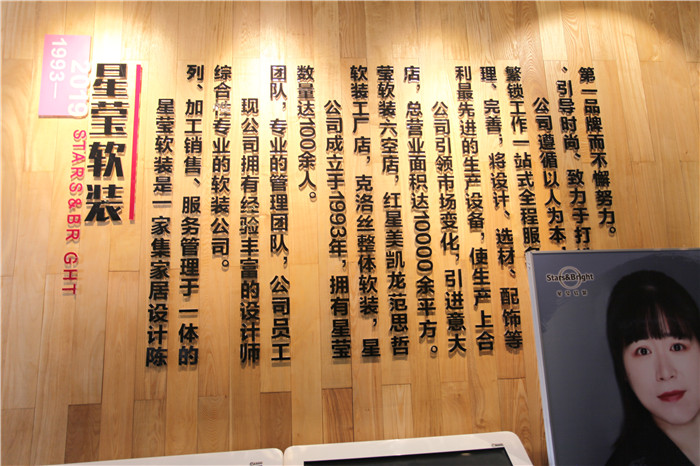 1993—
2019
STARS&BR GHT
星莹软装
星莹软装是一家集家居设计陈
列、加工销售、服务管理于一体的
综合性专业的软装公司。
现公司拥有经验丰富的设计师
团队，专业的管理团队，公司员工
数量达100余人。
公司成立于1993年，拥有星莹
软装工厂店，克洛丝整体软装，星
莹软装六空店，红星美凯龙范思哲
店，总营业面积达10000余平方。
公司引领市场变化，引进意大
利最先进的生产设备，使生产上合
理、完善，将设计、选材、配饰等
繁锁工作一站式全程服
公司遵循以人为本
、引导时尚、致力于打
第一品牌而不懈努力。
Stars&Bright